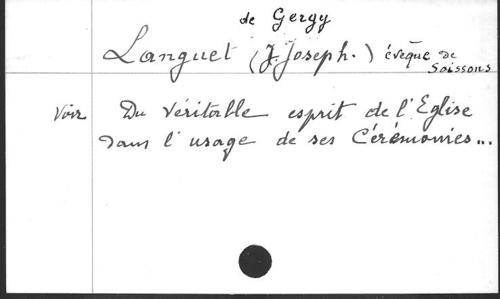 de Gergy
Languet (J. Joseph.) évêque de
Soissons
Voir Du Véritable esprit de l'Eglise
dans l'usage de ses Cérémonies...